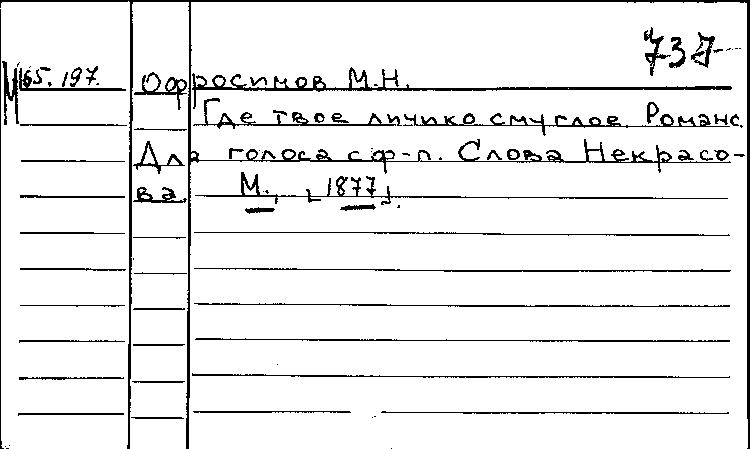 737
М 165.197. Офросимов М.Н.
Где твое личико смуглое. Романс.
Для голоса с ф-п. Слова Некрасо-
ва. М., [1877].